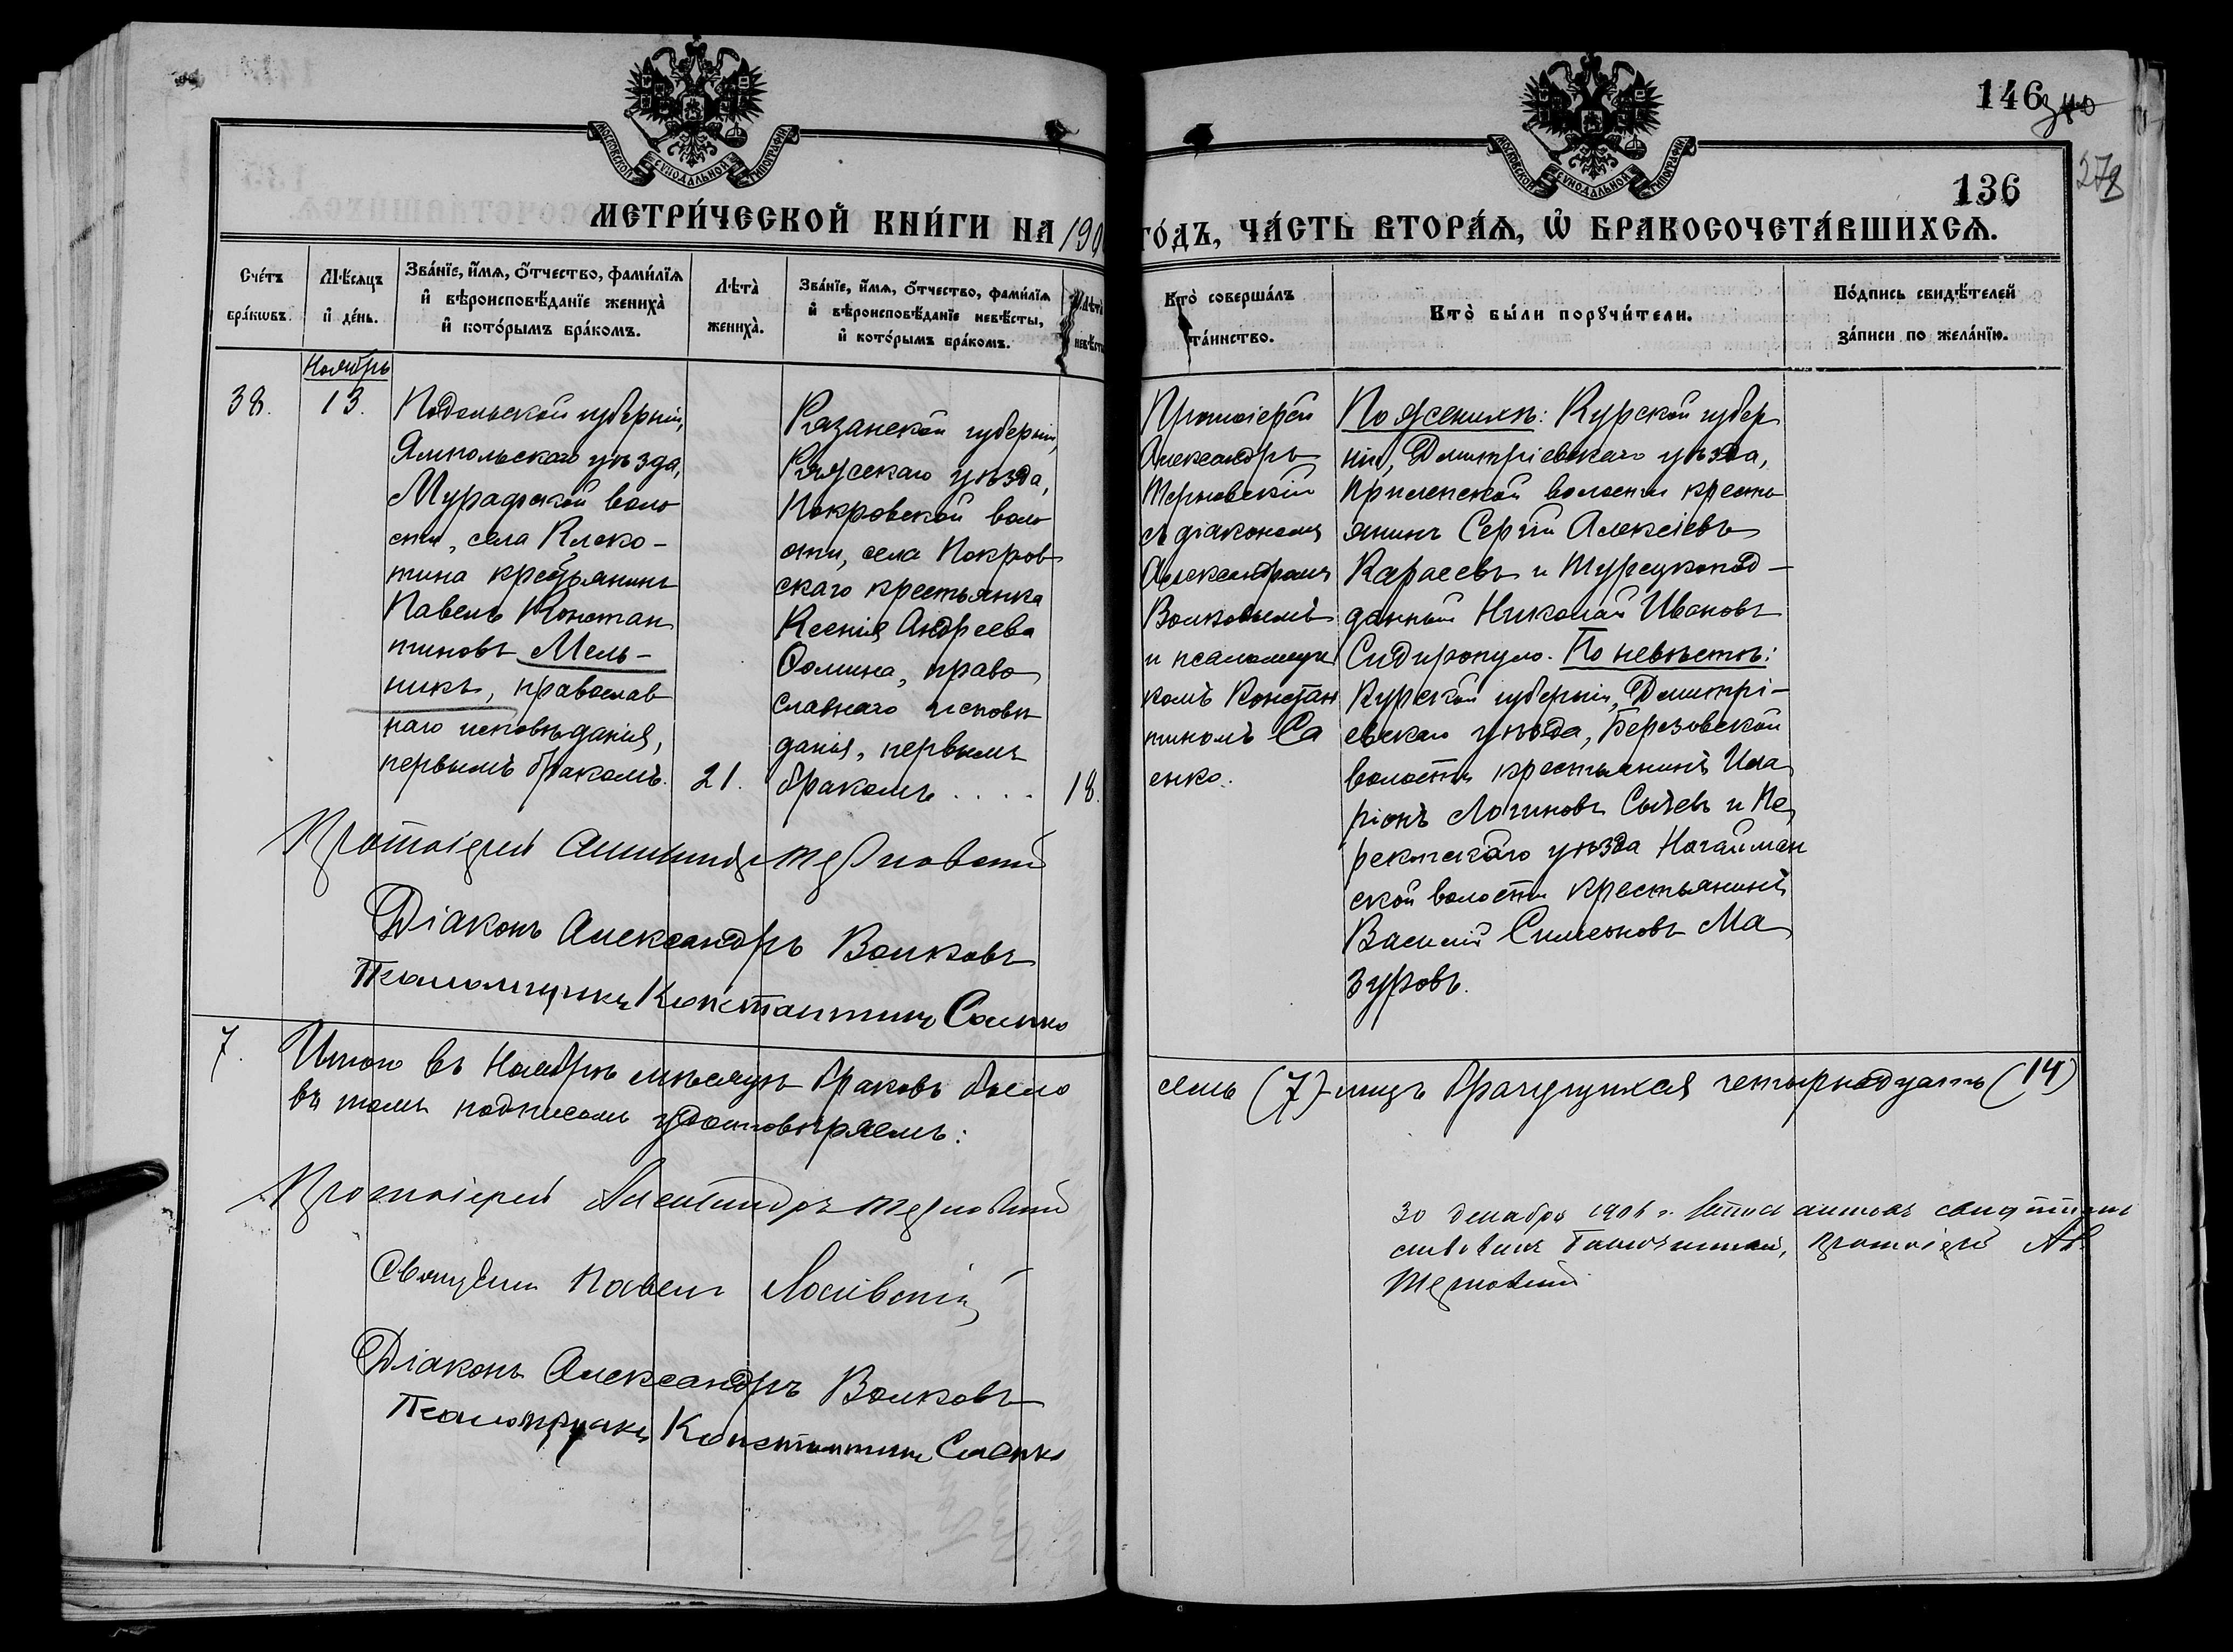 146
278
136
МОСКОВСКОЙ СУНОДАЛЬНОЙ ТИПОГРАФІИ
МОСКОВСКОЙ СУНОДАЛЬНОЙ ТИПОГРАФІИ
МЕТРИ́ЧЕСКОЙ КНИ́ГИ НА 190
ГО́ДЪ, ЧА́СТЬ ВТОРА́Ѧ, Ѡ҆ БРАКОСОЧЕТА́ВШИХСѦ.
Сче́тъ
бра́кѡвъ.
Мѣ́сяцъ
и҆ де́нь.
Зва́нїе, и҆́мѧ, ѻ҆́тчество, фами́лїѧ
и҆ вѣроисповѣ́данїе жениха̀
и҆ кото́рымъ бра́комъ.
Лѣта̀
жениха̀.
Зва́нїе, и҆́мѧ, ѻ҆́тчество, фами́лїѧ
и҆ вѣроисповѣ́данїе невѣ́сты,
и҆ кото́рымъ бра́комъ.
Лѣта̀
невѣ́сты
Кто̀ соверша́лъ
та́инство.
Кто̀ бы́ли порꙋчи́тели.
По́дпись свидѣ́телей
за́писи по жела́нїю.
Ноябрь
38.
13.
Подольской губерніи,
Ямпольскаго уѣзда,
Мурафской воло
сти, села Клеко-
тина крестьянинъ
Павелъ Констан
тиновъ Мель-
никъ, православ
наго исповѣданія,
первымъ бракомъ.
21.
Рязанской губерніи,
Ряжскаго уѣзда,
Покровской воло
сти, села Покров
скаго крестьянка
Ксенія Андреева
Ѳомина, право
славнаго исповѣ
данія, первымъ
бракомъ . . . .
18.
Протоіерей
Александръ
Терновскій
съ діакономъ
Александромъ
Волковымъ
и псаломщи
комъ Констан
тиномъ Са
енко.
По женихѣ: Курской губер
ніи, Дмитріевскаго уѣзда,
Прилепской волости кресть
янинъ Сергій Алексіевъ
Карасевъ и Турецкопод-
данный Николай Ивановъ
Сидиропуло. По невѣстѣ:
Курской губерніи, Дмитрі-
евскаго уѣзда, Березовской
волости крестьянинъ Ила
ріонъ Логиновъ Сычевъ и Пе
рекопскаго уѣзда Ногайман
ской волости крестьянинъ
Василій Симеоновъ Ма
зуровъ.
Протоіерей Александръ Терновскій
Діаконъ Александръ Волковъ
Псаломщикъ Константинъ Саенко
7.
Итого въ Ноябрѣ мѣсяцѣ браковъ было
семь (7) лицъ брачущихся четырнадцать (14)
въ томъ подписомъ удостовѣряемъ:
Протоіерей Александръ Терновскій
Священникъ Павелъ
Діаконъ Александръ Волковъ
Псаломщикъ Константинъ Саенко
30 декабря 1906 г.
протоіерей Ал.
Терновскій